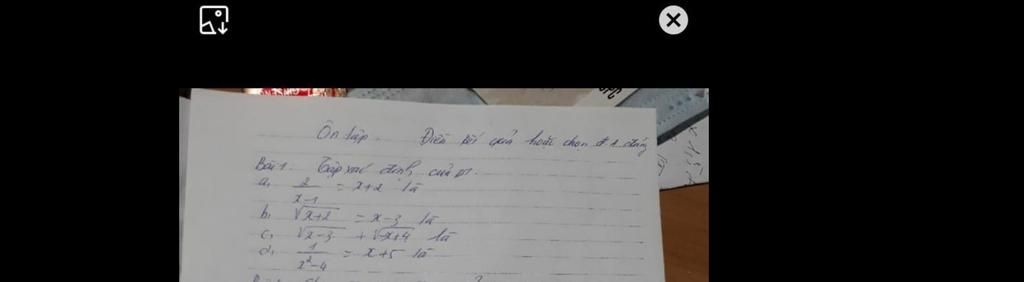 Ôn tập. Điền kết quả hoặc chọn đ 1 đúng
Bài 1. Tập xác định của pt.
a, 2/(x-1) = x+2 là
b, √(x+2) = x-3 là
c, √(x-3) + √(-x+4) là
d, 1/(x²-4) = x+5 là